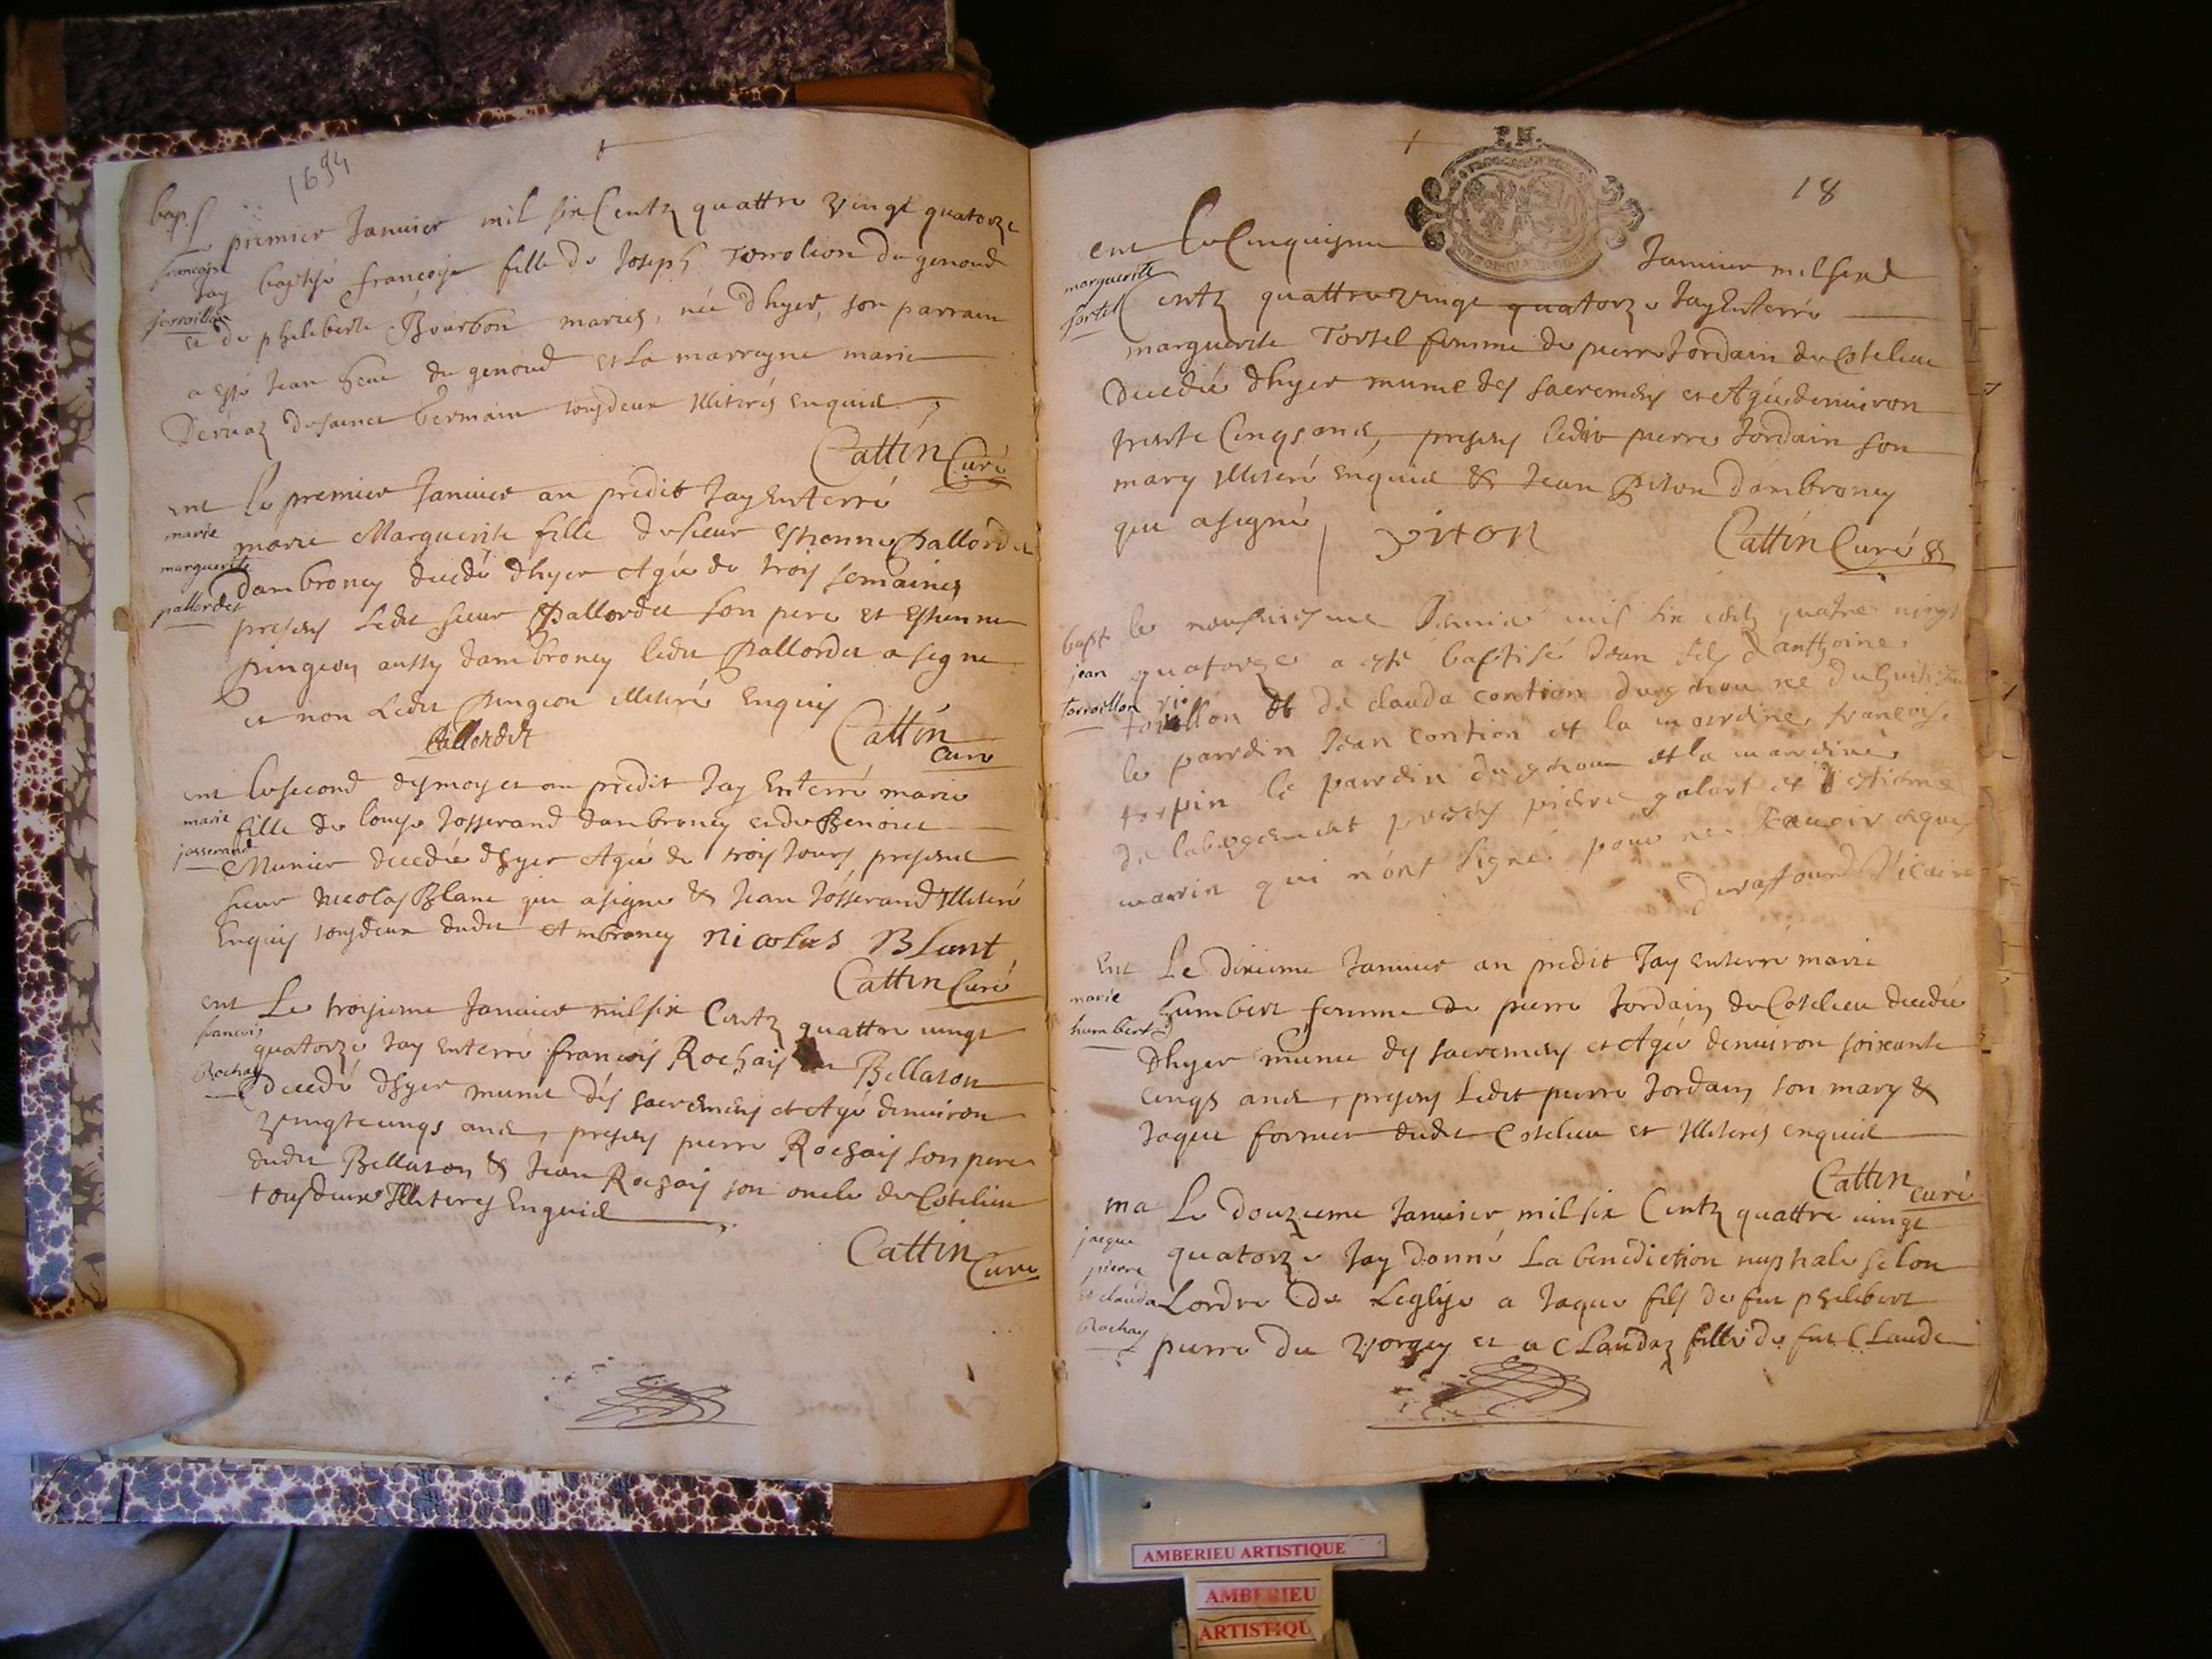 1694
bap. Le premier Januier mil six Centz quattre vingt quatorze
francoise
Jay baptisé francoise fille de Joseph Terrolion du genoud
terroillon
et de philiberte Bourbon mariez, née dhyer, son parrain
a esté Jean du genoud et La marrayne marie
Deruaz de sainct Germain tousdeux Illiterés enquis
Cattin Curé
ent le premier Januier an predit Jay Enterré
marie
marie Marguerite fille de sieur Estienne Pallordet
marguerite
dambroney decedé dhyer Agée de trois semaines
pallordet
presens Ledit sieur Pallordet son pere et Estienne
pingeon aussy dambroney ledit Pallordet a signé
et non Ledit pingeon illiteré Enquis
Pallordet
Cattin
Curé
ent Le second desmoys et an predit Jay Enterré marie
marie
fille de Josserand dambroney et de Benoite
josserand
Munier decedée dhyer Agée de trois Jours presens
sieur Nicolas Blanc qui a signé & Jean Josserand Illiteré
Enquis tousdeux dudit Ambroney nicolas BLant
Cattin Curé
ent Le troisieme Januier mil six Centz quattre vingt
francois
quatorze Jay Enterré francois Rochais Bellaton
Rochay
decedé dhyer muni des sacremens et Agé denuiron
vingtcinqs ans, presens pierre Rochais son pere
dudit Bellaton & Jean Rochais son oncle de Cotelieu
tousdeux Illiterés Enquis
Cattin Curé
18
ent Le Cinquiesme Januier mil six
marguerite
Centz quattre vinge quatorze Jay Enterré
tortel
marguerite Tortel femme de pierre Jordain de Cotelieu
decedée dhyer munie des sacremens et Agée denuiron
trente Cinqs ans, presens ledit pierre Jordain son
mary illiteré enquis & Jean Piton dambroney
qui a signé
piton
Cattin Curé
bapt le neufuiesme mil six centz quatre vingt
jean quatorze a esté baptisé Jean fils d'anthoine
terroillon
de clauda contion du
le parrdin Jean contion et la marrdine francoise
terpin le parrdin du et la marrdine
de presens pierre galart et estienne
marin qui n'ont signé pour ne scauoir
Vicaire
Ent Le dixieme Januier an predit Jay enterré marie
marie
humbert femme de pierre Jordain de Cotelieu decedée
humbert
dhyer munie des sacremens et Agée denuiron soixante
cinqs ans, presens Ledit pierre Jordain son mary &
Jaque fornier dudit Cotelieu et Illiterés enquis
Cattin curé
ma Le douzieme Januier mil six Centz quattre vinge
jacque
quatorze Jay donné La benediction nuptiale selon
pierre
et clauda
Lordre de Leglise a Jaque fils de fut philibert
Rochay
pierre du vorgey et a CLaudaz fille de fut CLaude
AMBERIEU ARTISTIQUE
AMBERIEU
ARTISTIQU